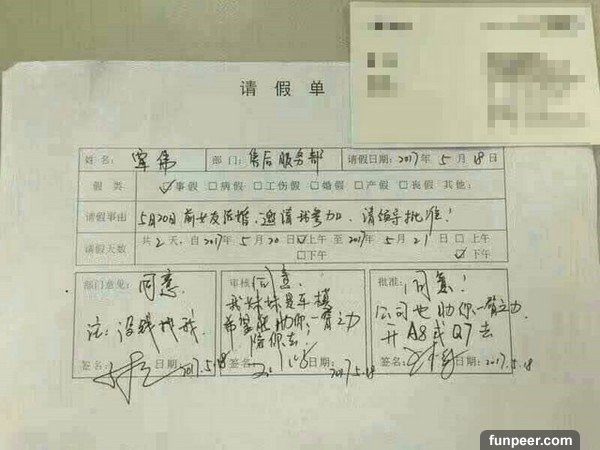 请假单
姓名: 军伟 部门: 售后服务部 请假日期: 2017年5月18日
假类 ☑事假 □病假 □工伤假 □婚假 □产假 □丧假 其他:
请假事由 5月20日前女友结婚、邀请我参加、请领导批准!
请假天数 共2天,自2017年5月20日☑上午 至2017年5月21日□上午
□下午 ☑下午
部门意见: 同意.
注: 没钱找我.
签名: 日期: 2017.5.18
审核: 同意.
我妹妹是车模
希望能助你一臂之力
陪你去.
签名: 日期: 2017.5.18
批准: 同意!
公司也助你一臂之力
开A8或Q7去
签名: 日期: 2017.5.18
funpeer.com